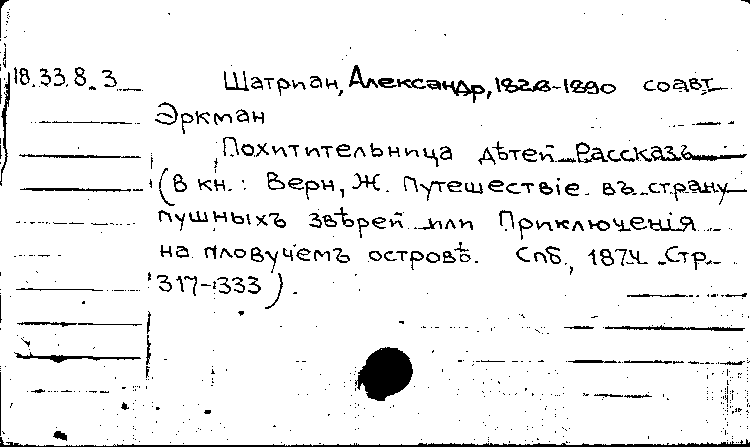 18.33.8.3 Шатриан, Александр, 1826-1890 соавт
Эркман
Похитительница дѣтей Рассказъ
(В кн.: Верн, Ж. Путешествіе въ страну
пушныхъ звѣрей или Приключенія
на пловучемъ островѣ. Спб., 1874 Стр.
317-333).